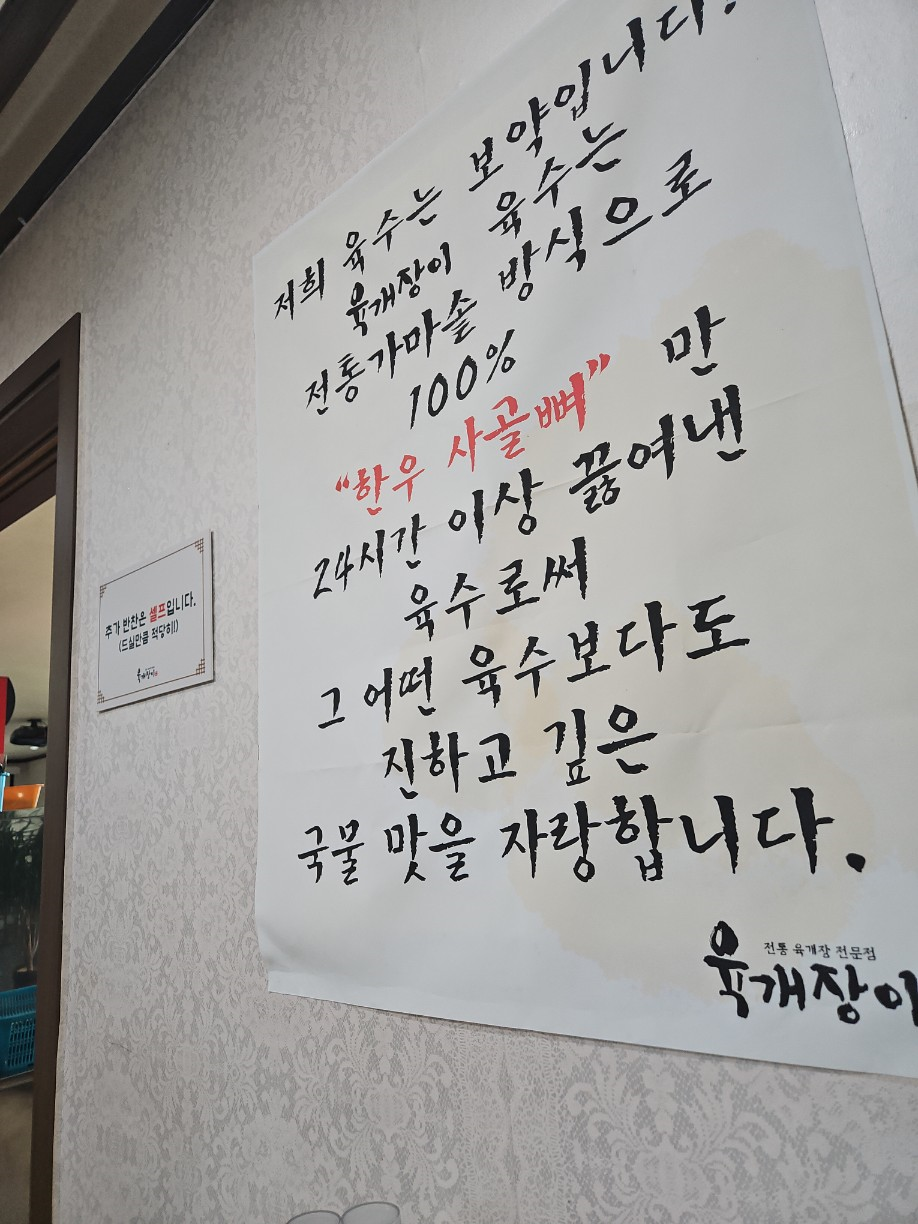 저희 육수는 보약입니다!
육개장이 육수는
전통가마솥 방식으로
100%
"한우 사골뼈" 만
24시간 이상 끓여낸
육수로써
그 어떤 육수보다도
진하고 깊은
국물 맛을 자랑합니다.
전통 육개장 전문점
육개장이
추가 반찬은 셀프입니다.
(드실만큼 적당히!)
육개장이